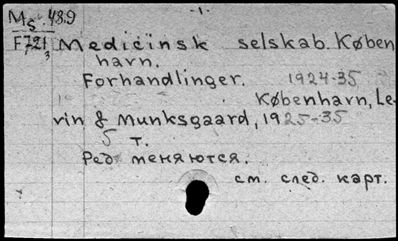 -1-
Ms 48.9
F721/3
Medicinsk selskab. Køben
havn.
Forhandlinger. 1924-35
København, Le-
vin & Munksgaard, 1925-35
5 т.
Ред. меняются.
см. след. карт.